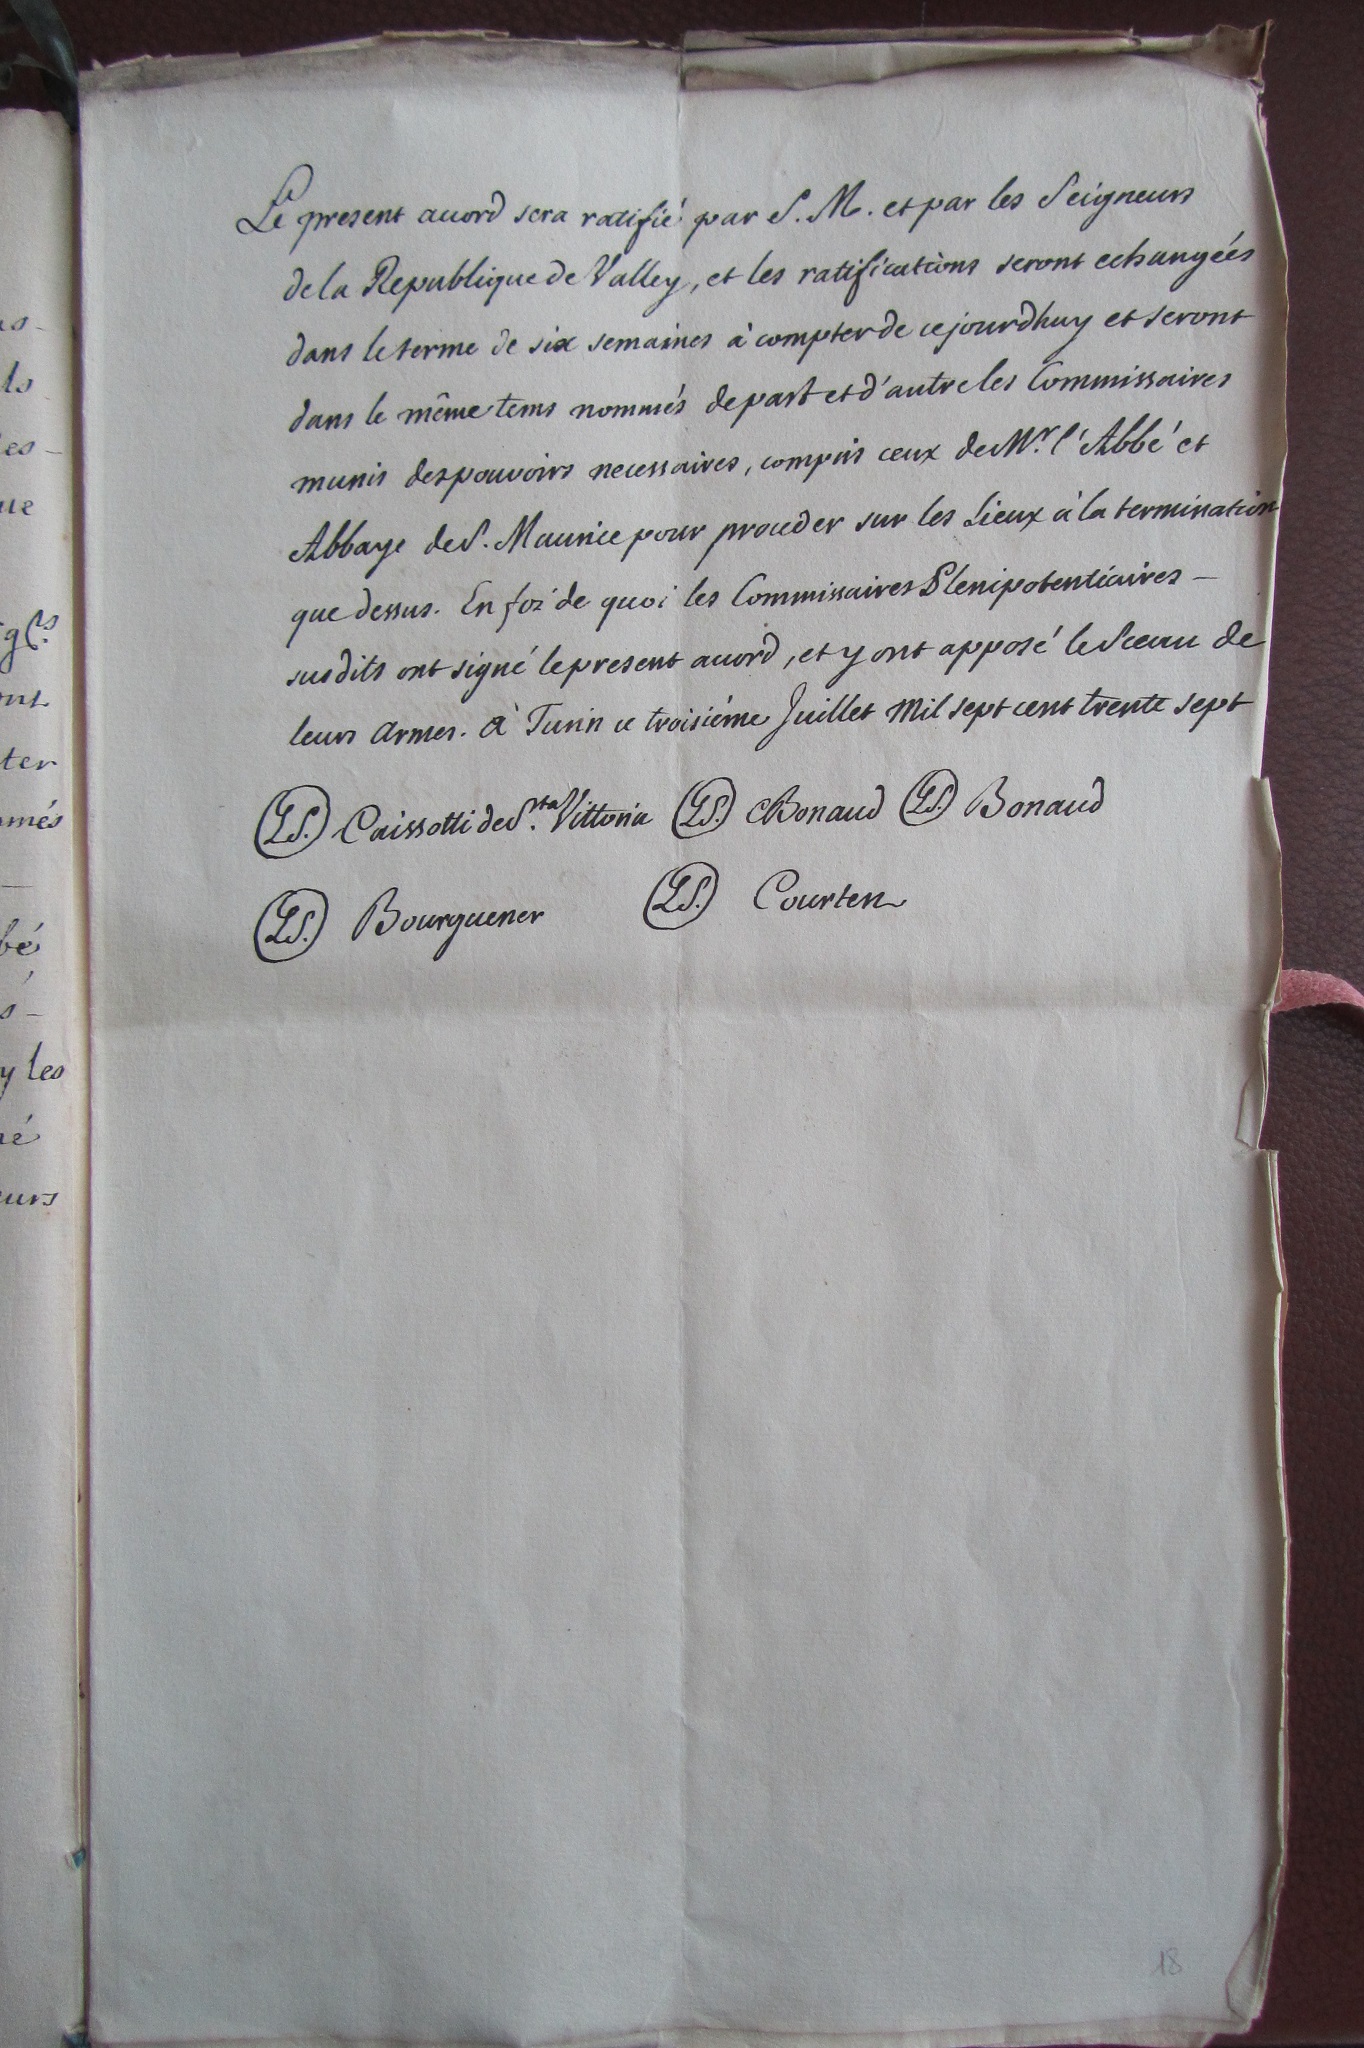 Le present acord sera ratifié par S. M. et par les Seigneurs
de la Republique de Valley, et les ratifications seront echangéés
dans le terme de six semaines à compter de cejourdhuy et seront
dans le même tems nommés de part et d'autre les Commissaires
munis des pouvoirs necessaires, compris ceux de Mr. l'Abbé et
Abbaye de S. Maurice pour proceder sur les Lieux à la termination
que dessus. En foi de quoi les Commissaires Plenipotentiaires -
susdits ont signé le present acord, et y ont apposé le Sceau de
leurs Armes. à Turin ce troisiéme Juillet Mil sept cent trente sept
LS. Caissotti de Sta. Vittoria LS. Bonaud LS. Bonaud
LS. Bourguener LS. Courten
18
as-
ls
es-
ue
grs.
ont
ter
més
bé
s-
y les
né
eurs